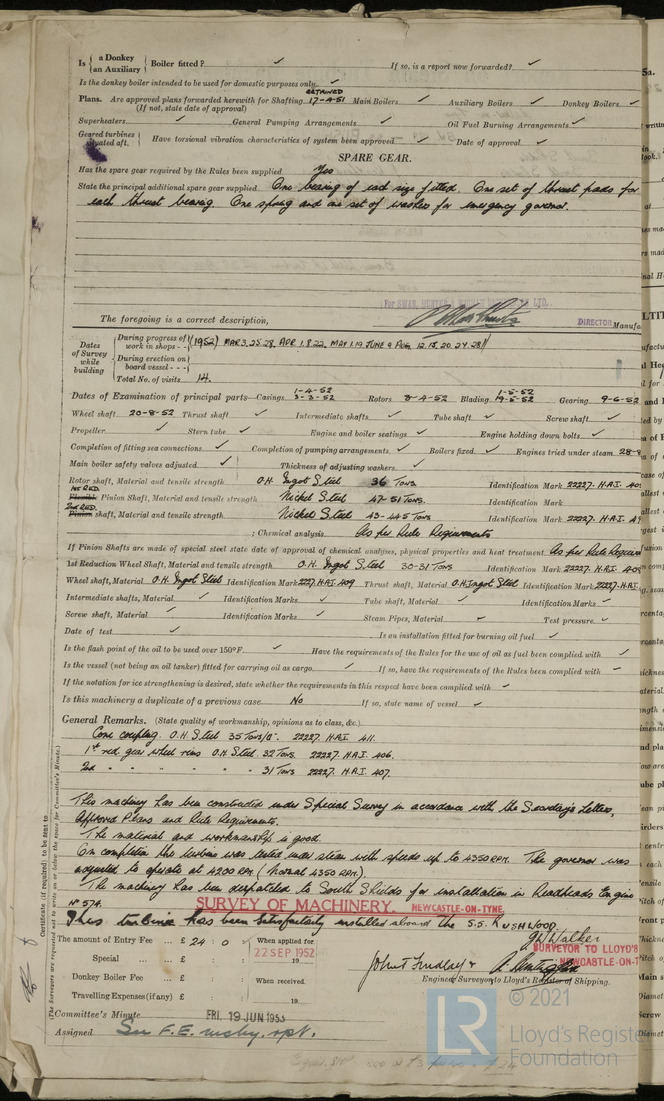 Is { a Donkey / an Auxiliary } Boiler fitted? ✓ If so, is a report now forwarded? ✓
Is the donkey boiler intended to be used for domestic purposes only ✓
RETAINED
Plans. Are approved plans forwarded herewith for Shafting 17-4-51 Main Boilers ✓ Auxiliary Boilers ✓ Donkey Boilers ✓
(If not, state date of approval)
Superheaters ✓ General Pumping Arrangements ✓ Oil Fuel Burning Arrangements ✓
Geared turbines situated aft. } Have torsional vibration characteristics of system been approved ✓ Date of approval ✓
SPARE GEAR.
Has the spare gear required by the Rules been supplied Yes
State the principal additional spare gear supplied One bearing of each size fitted. One set of thrust pads for
each thrust bearing. One spring and one set of washers for emergency governor.
For SWAN, HUNTER, LTD.,
The foregoing is a correct description, DIRECTOR Manufa
Dates of Survey while building
During progress of work in shops - - (1952) MAR 3. 25. 28. APR 1. 8. 22. MAY 1. 19. JUNE 9 AUG 12. 15. 20. 24. 28
During erection on board vessel - - -
Total No. of visits 14.
1-4-52 1-5-52
Dates of Examination of principal parts—Casings 3-3-52 Rotors 8-4-52 Blading 19-5-52 Gearing 9-6-52
Wheel shaft 20-8-52 Thrust shaft ✓ Intermediate shafts ✓ Tube shaft ✓ Screw shaft ✓
Propeller ✓ Stern tube ✓ Engine and boiler seatings ✓ Engine holding down bolts ✓
Completion of fitting sea connections ✓ Completion of pumping arrangements ✓ Boilers fixed ✓ Engines tried under steam 28-8
Main boiler safety valves adjusted ✓ Thickness of adjusting washers ✓
Rotor shaft, Material and tensile strength O.H. Ingot Steel 36 Tons Identification Mark 22227. H.A.I. 40
1st RED. Flexible Pinion Shaft, Material and tensile strength Nickel Steel 47-51 Tons. Identification Mark
2nd RED. Pinion shaft, Material and tensile strength Nickel Steel 43-44.5 Tons Identification Mark 22227. H.A.I. 4
; Chemical analysis As per Rule Requirements
If Pinion Shafts are made of special steel state date of approval of chemical analyses, physical properties and heat treatment As per Rule Require
1st Reduction Wheel Shaft, Material and tensile strength O.H. Ingot Steel 30-31 Tons Identification Mark 22227. H.A.I. 405
Wheel shaft, Material O.H. Ingot Steel Identification Mark 22227. H.A.I. 409 Thrust shaft, Material O.H. Ingot Steel Identification Mark 22227. H.A.I.
Intermediate shafts, Material ✓ Identification Marks ✓ Tube shaft, Material ✓ Identification Marks ✓
Screw shaft, Material ✓ Identification Marks ✓ Steam Pipes, Material ✓ Test pressure ✓
Date of test ✓ Is an installation fitted for burning oil fuel ✓
Is the flash point of the oil to be used over 150°F. ✓ Have the requirements of the Rules for the use of oil as fuel been complied with ✓
Is the vessel (not being an oil tanker) fitted for carrying oil as cargo ✓ If so, have the requirements of the Rules been complied with ✓
If the notation for ice strengthening is desired, state whether the requirements in this respect have been complied with ✓
Is this machinery a duplicate of a previous case No If so, state name of vessel ✓
General Remarks. (State quality of workmanship, opinions as to class, &c.)
Cone coupling. O.H. Steel 35 Tons/□". 22227. H.A.I. 411.
1st red. gear wheel rims O.H. Steel. 32 Tons. 22227. H.A.I. 406.
2nd " " " " " 31 Tons 22227. H.A.I. 407.
This machinery has been constructed under Special Survey in accordance with the Secretary's Letters,
Approved Plans and Rule Requirements.
The material and workmanship is good.
On completion the turbine was tested under steam with speeds up to 4350 RPM. The governor was
adjusted to operate at 4200 RPM (Normal 4350 RPM).
The machinery has been despatched to South Shields for installation in Readheads Engine
No 574.
SURVEY OF MACHINERY. NEWCASTLE-ON-TYNE.
This turbine has been satisfactorily installed aboard the S.S. RUSHWOOD.
J.W. Walker
SURVEYOR TO LLOYD'S
NEWCASTLE-ON-T
The amount of Entry Fee ... £ 24 : 0 : When applied for
22 SEP 1952
Special ... £ : : 19
John T Findlay &
Engineer Surveyor to Lloyd's Register of Shipping.
Donkey Boiler Fee ... £ : : When received.
Travelling Expenses (if any) £ : : 19
Committee's Minute FRI. 19 JUN 1953
Assigned See F.E. mchy. rpt.
Certificate (if required) to be sent to
(The Surveyors are requested not to write on or below the space for Committee's Minute.)
© 2021
LR
Lloyd's Register
Foundation